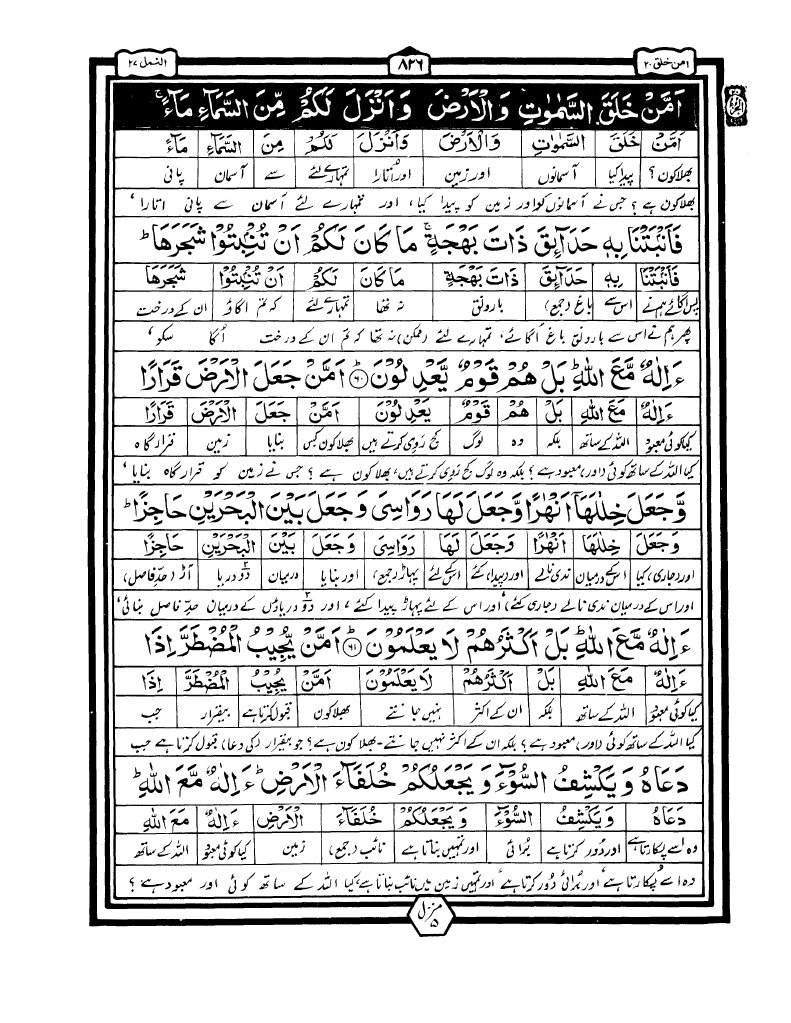 امن خلق ٢٠
٨٢٦
النمل ٢٧
اَمَّنْ خَلَقَ السَّمٰوٰتِ وَالْاَرْضَ وَاَنْزَلَ لَكُمْ مِّنَ السَّمَآءِ مَآءً ۚ
اَمَّنْ خَلَقَ السَّمٰوٰتِ وَالْاَرْضَ وَاَنْزَلَ لَكُمْ مِنَ السَّمَآءِ مَآءً
بھلا کون؟ پیدا کیا آسمانوں اور زمین اور اُتارا تمہارے لئے سے آسمان پانی
بھلا کون ہے؟ جس نے آسمانوں کو اور زمین کو پیدا کیا، اور تمہارے لئے آسمان سے پانی اتارا،
فَاَنْۢبَتْنَا بِهٖ حَدَآئِقَ ذَاتَ بَهْجَةٍ ۚ مَا كَانَ لَكُمْ اَنْ تُنْۢبِتُوْا شَجَرَهَا ؕ
فَاَنْۢبَتْنَا بِهٖ حَدَآئِقَ ذَاتَ بَهْجَةٍ مَا كَانَ لَكُمْ اَنْ تُنْۢبِتُوْا شَجَرَهَا
پس اگائے ہم نے اس سے باغ (جمع) بارونق نہ تھا تمہارے لئے کہ تم اگاؤ ان کے درخت
پھر ہم نے اس سے بارونق باغ اُگائے، تمہارے لئے (ممکن) نہ تھا کہ تم ان کے درخت اُگا سکو،
ءَاِلٰهٌ مَّعَ اللّٰهِ ؕ بَلْ هُمْ قَوْمٌ يَّعْدِلُوْنَ ؕ ٦٠ اَمَّنْ جَعَلَ الْاَرْضَ قَرَارًا
ءَاِلٰهٌ مَّعَ اللّٰهِ بَلْ هُمْ قَوْمٌ يَعْدِلُوْنَ اَمَّنْ جَعَلَ الْاَرْضَ قَرَارًا
کیا کوئی معبود اللہ کے ساتھ بلکہ وہ لوگ کج روی کرتے ہیں بھلا کون کس بنایا زمین قرار گاہ
کیا اللہ کے ساتھ کوئی (اور) معبود ہے؟ بلکہ وہ لوگ کج روی کرتے ہیں، بھلا کون ہے؟ جس نے زمین کو قرار گاہ بنایا،
وَّجَعَلَ خِلٰلَهَآ اَنْهٰرًا وَّجَعَلَ لَهَا رَوَاسِىَ وَجَعَلَ بَيْنَ الْبَحْرَيْنِ حَاجِزًا ؕ
وَجَعَلَ خِلٰلَهَا اَنْهٰرًا وَجَعَلَ لَهَا رَوَاسِىَ وَجَعَلَ بَيْنَ الْبَحْرَيْنِ حَاجِزًا
اور (جاری) کیا اسکے درمیان ندی نالے اور (پیدا) کئے اسکے لئے پہاڑ (جمع) اور بنایا درمیان دو دریا آڑ (حدِ فاصل)
اور اس کے درمیان ندی نالے (جاری کئے)، اور اس کے لئے پہاڑ پیدا کئے، اور دو دریاؤں کے درمیان حدِ فاصل بنائی،
ءَاِلٰهٌ مَّعَ اللّٰهِ ؕ بَلْ اَكْثَرُهُمْ لَا يَعْلَمُوْنَ ؕ ٦١ اَمَّنْ يُّجِيْبُ الْمُضْطَرَّ اِذَا
ءَاِلٰهٌ مَّعَ اللّٰهِ بَلْ اَكْثَرُهُمْ لَا يَعْلَمُوْنَ اَمَّنْ يُجِيْبُ الْمُضْطَرَّ اِذَا
کیا کوئی معبود اللہ کے ساتھ بلکہ ان کے اکثر نہیں جانتے بھلا کون قبول کرتا ہے بیقرار جب
کیا اللہ کے ساتھ کوئی (اور) معبود ہے؟ بلکہ ان کے اکثر نہیں جانتے۔ بھلا کون ہے؟ جو بیقرار (کی دعا) قبول کرتا ہے جب
دَعَاهُ وَيَكْشِفُ السُّوْٓءَ وَيَجْعَلُكُمْ خُلَفَآءَ الْاَرْضِ ؕ ءَاِلٰهٌ مَّعَ اللّٰهِ ؕ
دَعَاهُ وَيَكْشِفُ السُّوْٓءَ وَيَجْعَلُكُمْ خُلَفَآءَ الْاَرْضِ ءَاِلٰهٌ مَّعَ اللّٰهِ
وہ اسے پکارتا ہے اور دُور کرتا ہے بُرائی اور تمہیں بناتا ہے نائب (جمع) زمین کیا کوئی معبود اللہ کے ساتھ
وہ اسے پکارتا ہے، اور بُرائی دُور کرتا ہے اور تمہیں زمین میں نائب بناتا ہے، کیا اللہ کے ساتھ کوئی اور معبود ہے؟
منزل ٥